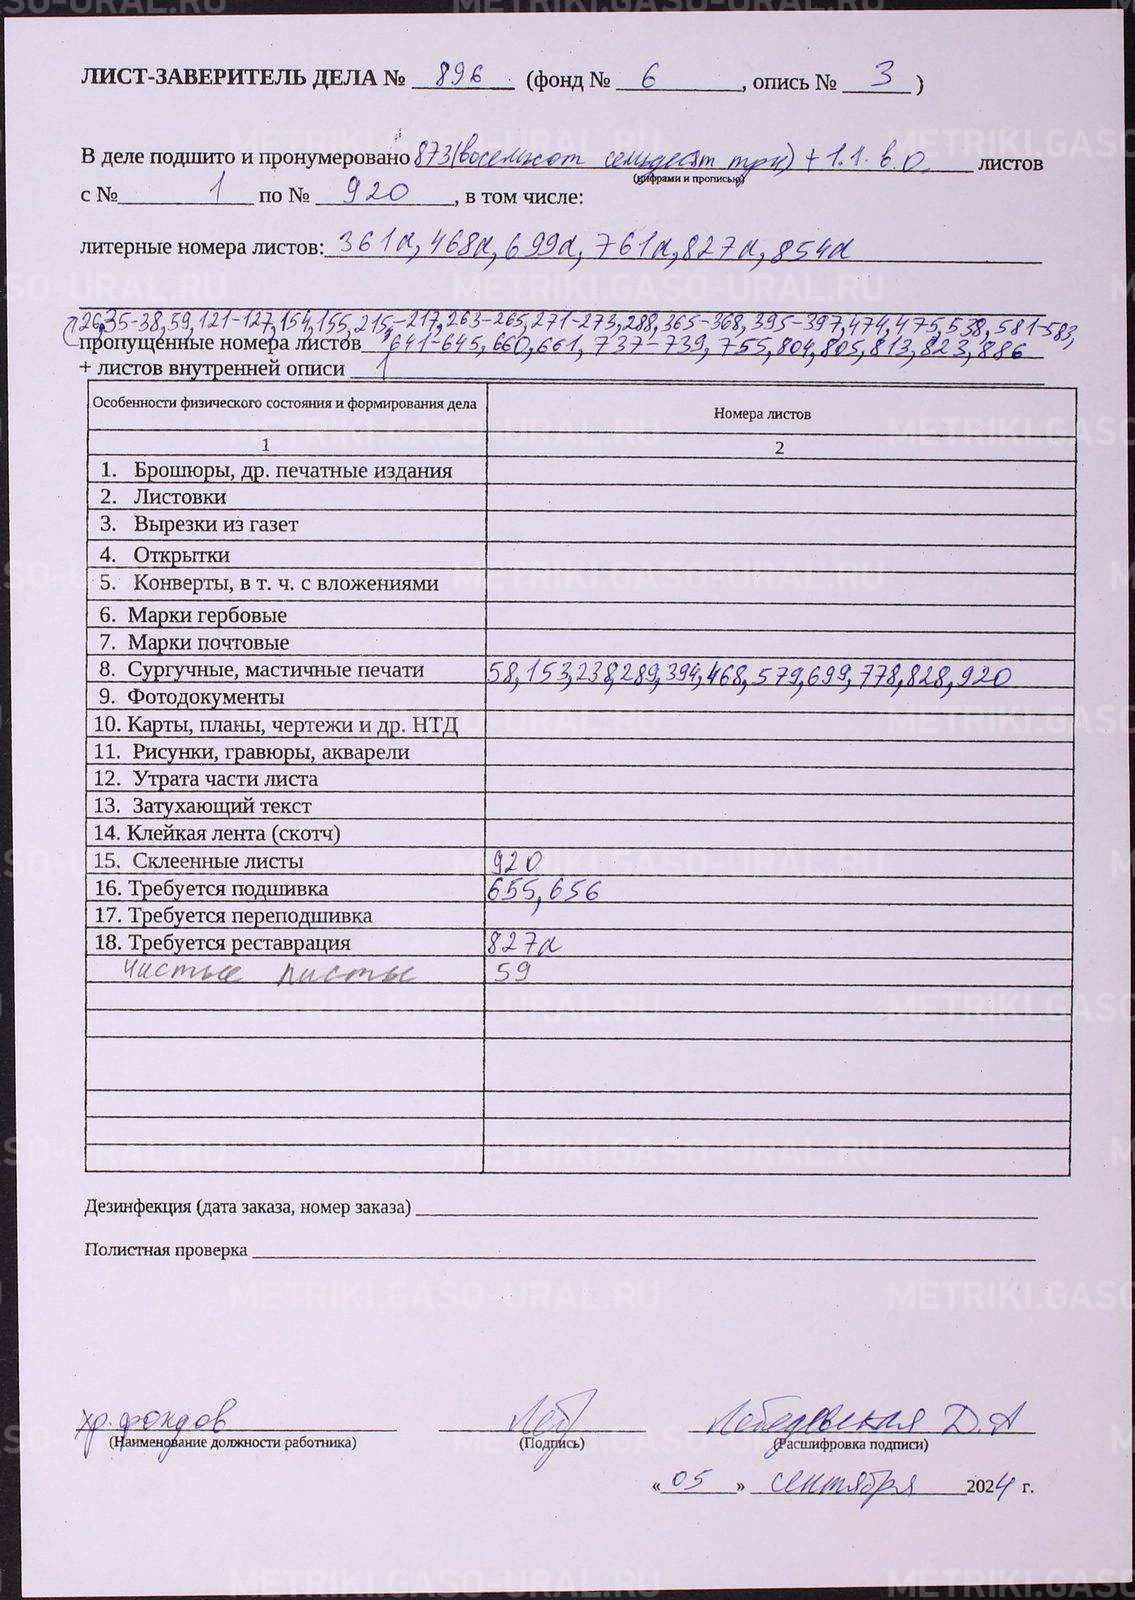 ЛИСТ-ЗАВЕРИТЕЛЬ ДЕЛА № 896 (фонд № 6, опись № 3)
В деле подшито и пронумеровано 873 (восемьсот семьдесят три) + 1 л. в. о. листов
(цифрами и прописью)
с № 1 по № 920, в том числе:
литерные номера листов: 361а, 468а, 699а, 761а, 827а, 854а
26,35-38,59,121-127,154,155,215-217,263-265,271-273,288,365-368,395-397,474,475,538,581-583,
пропущенные номера листов 641-645,660,661,737-739,755,804,805,813,823,886
+ листов внутренней описи 1
Особенности физического состояния и формирования дела Номера листов
1 2
1. Брошюры, др. печатные издания
2. Листовки
3. Вырезки из газет
4. Открытки
5. Конверты, в т. ч. с вложениями
6. Марки гербовые
7. Марки почтовые
8. Сургучные, мастичные печати 58,153,238,289,394,468,579,699,778,828,920
9. Фотодокументы
10. Карты, планы, чертежи и др. НТД
11. Рисунки, гравюры, акварели
12. Утрата части листа
13. Затухающий текст
14. Клейкая лента (скотч)
15. Склеенные листы 920
16. Требуется подшивка 655, 656
17. Требуется переподшивка
18. Требуется реставрация 827а
Чистые листы 59
Дезинфекция (дата заказа, номер заказа)
Полистная проверка
хр. фондов Леб Лебедевская Д.А
(Наименование должности работника) (Подпись) (Расшифровка подписи)
«05» сентября 2024 г.
METRIKI.GASO-URAL.RU